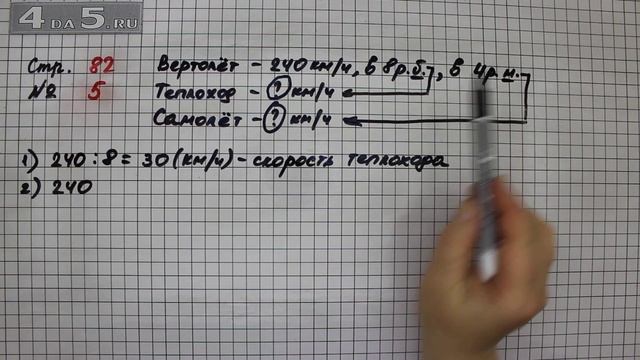 4 DA 5.RU
Стр. 82 Вертолёт - 240 км/ч, в 8 р. б., в 4 р. м.
№ 5 Теплоход - ? км/ч
Самолёт - ? км/ч
1) 240 : 8 = 30 (км/ч) - скорость теплохода
2) 240